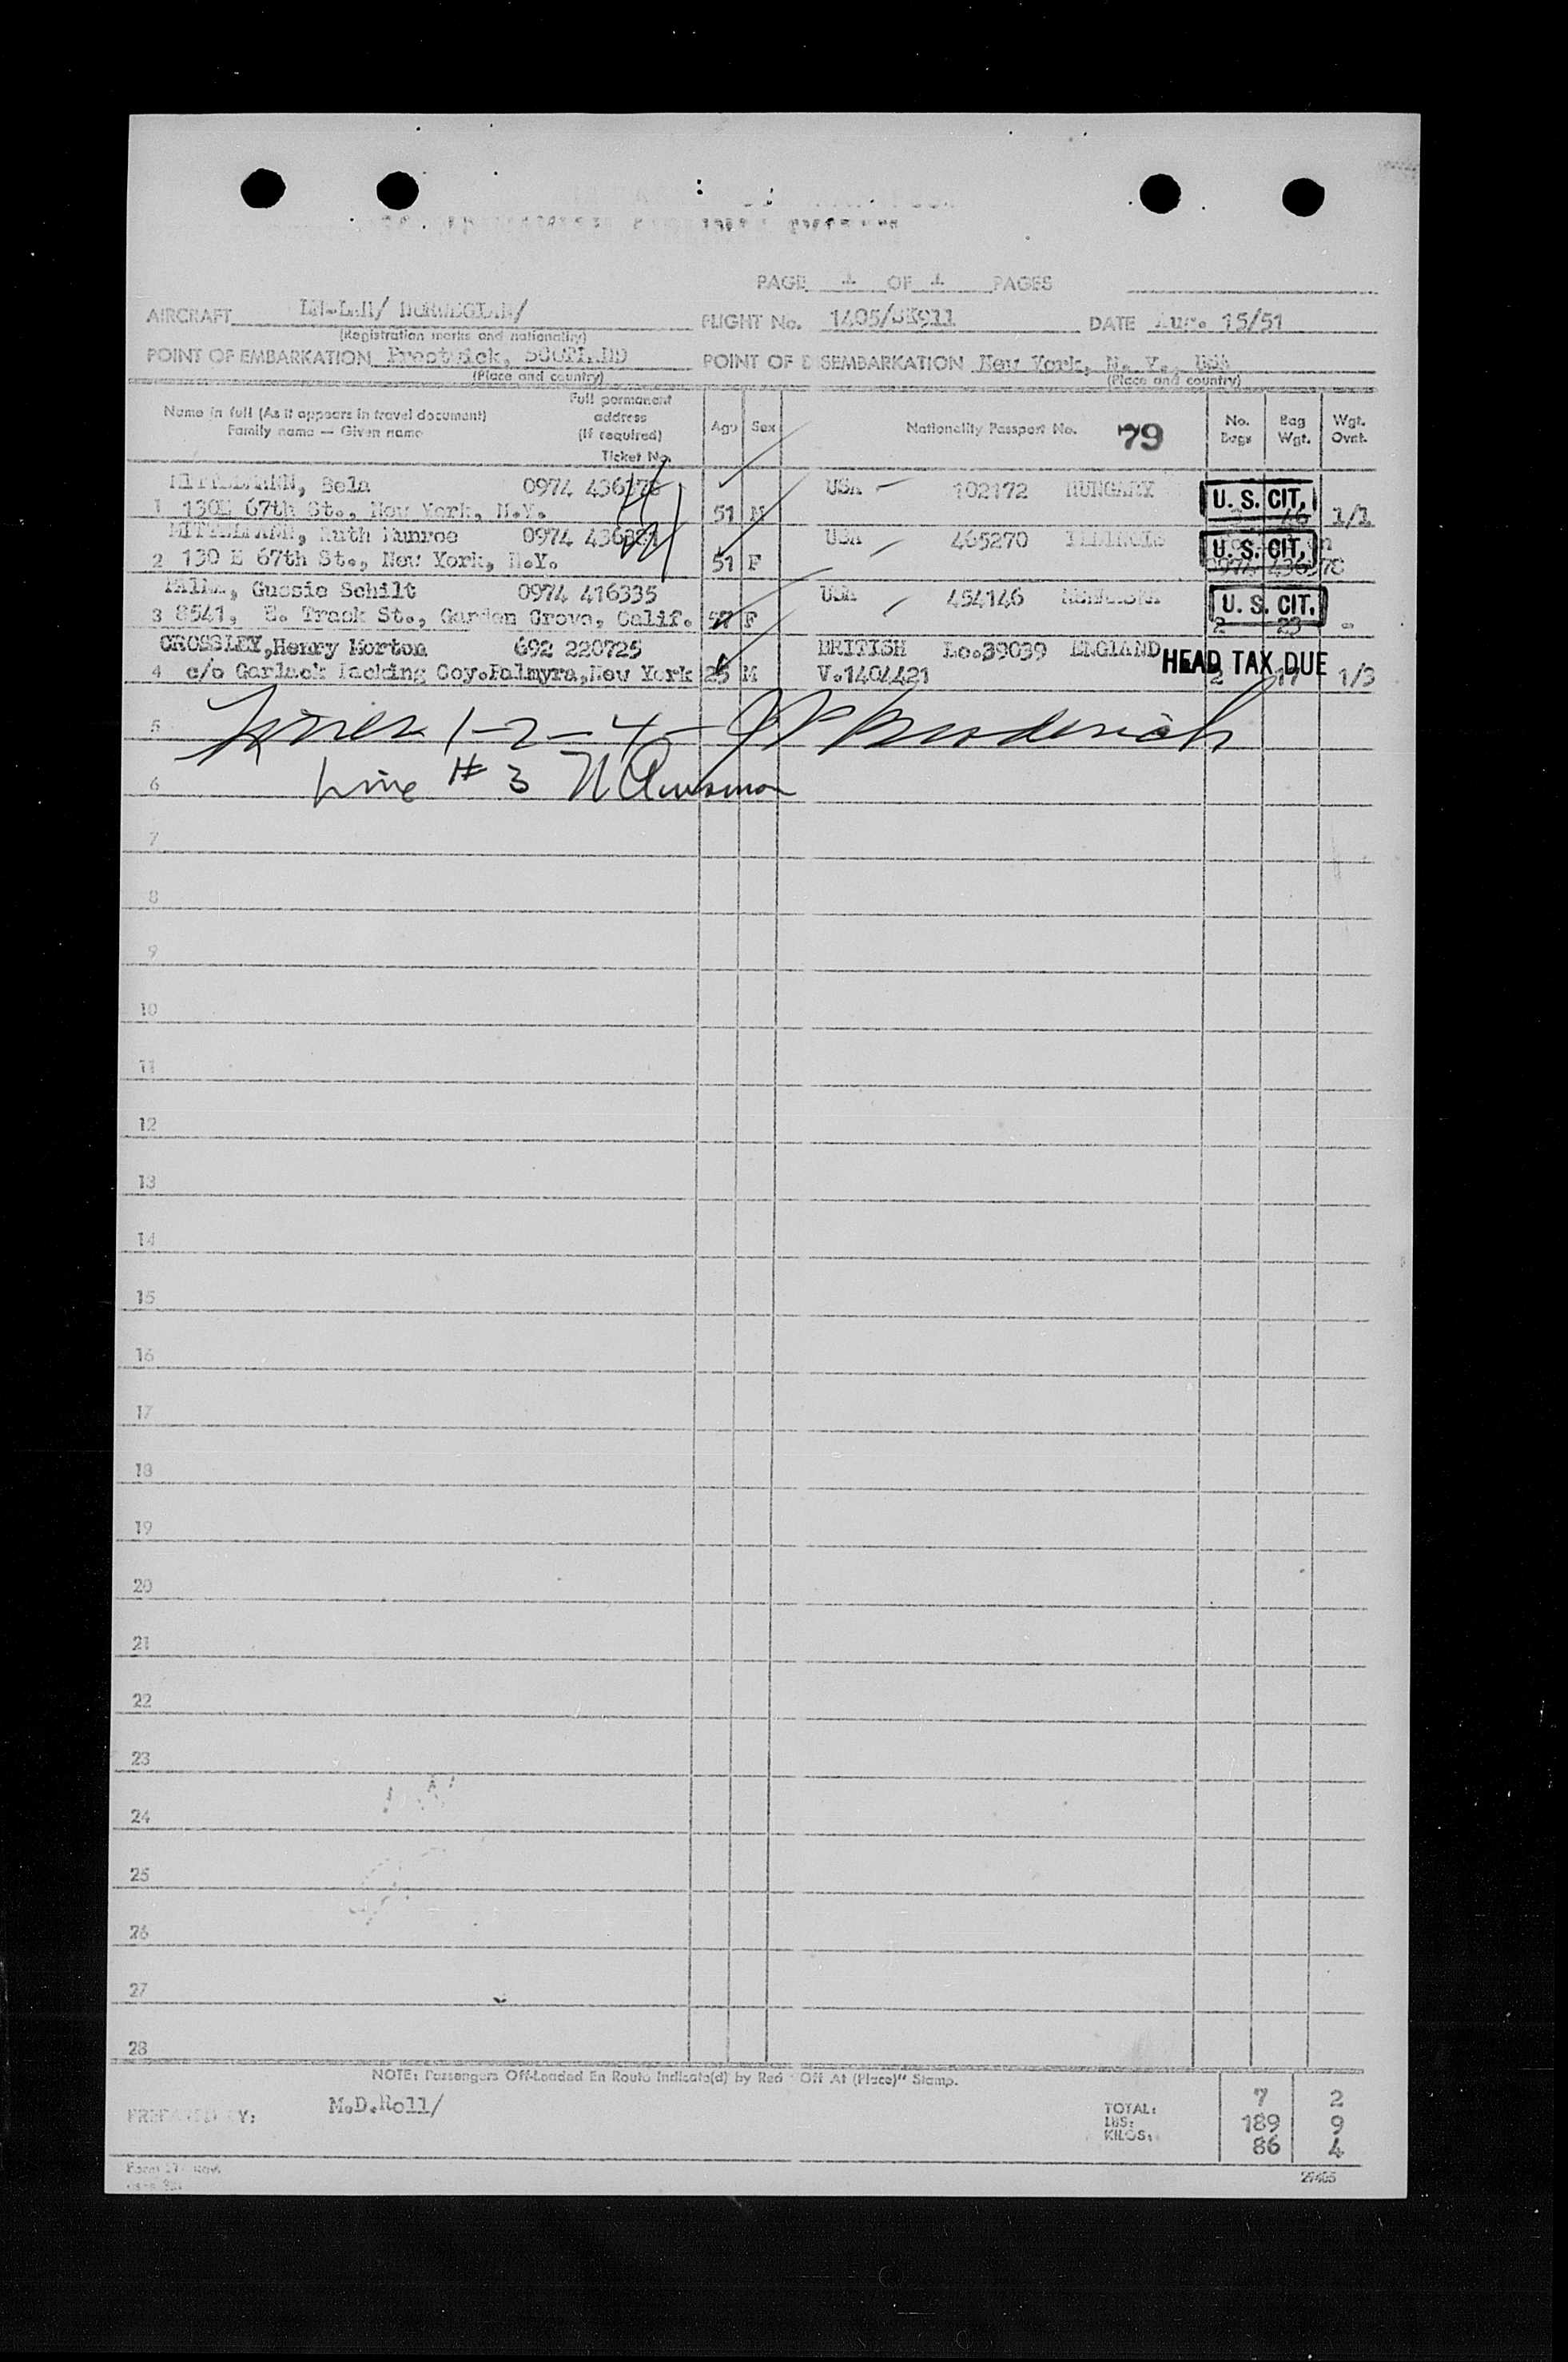 PAGE OF PAGES
AIRCRAFT NORWEGIAN/ FLIGHT No. 1405/SK911 DATE Aug. 15/51
(Registration marks and nationality)
POINT OF EMBARKATION Prestwick, SCOTLAND POINT OF DISEMBARKATION New York, N. Y., USA
(Place and country) (Place and country)
Name in full (As it appears in travel document)
Family name — Given name
Full permanent
address
(If required)
Ticket No.
Age Sex Nationality Passport No. 79 No. Bags Bag Wgt. Wgt. Ovnt.
MITTELMANN, Bela 0974 USA 102172 HUNGARY U. S. CIT.
1 130E 67th St., New York, N.Y. 51 M 1/1
MITTELMANN, Ruth Munroe 0974 USA 465270 ILLINOIS U. S. CIT.
2 130 E 67th St., New York, N.Y. 51 F
Gussie Schilt 0974 416335 USA 454146 NEBRASKA U. S. CIT.
3 8541, E. Track St., Garden Grove, Calif. F 2 23 -
CROSSLEY, Henry Morton 692 220725 BRITISH Lo.39039 ENGLAND HEAD TAX DUE
4 c/o Garlack Packing Coy.Palmyra,New York 25 M V.1404421 2 17 1/3
5 Lines 1-2-4-
6 Line # 3
7
8
9
10
11
12
13
14
15
16
17
18
19
20
21
22
23
24
25
26
27
28
NOTE: Passengers Off-Loaded En Route Indicate(d) by Red "Off At (Place)" Stamp.
PREPARED BY: M.D.Roll/
TOTAL: 7 2
LBS: 189 9
KILOS: 86 4
27405